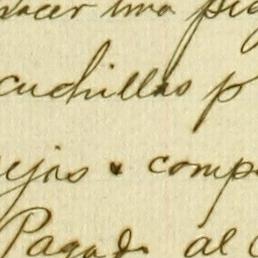 hacer una pie
cuchillas p
ejos • comp
Pagado al C